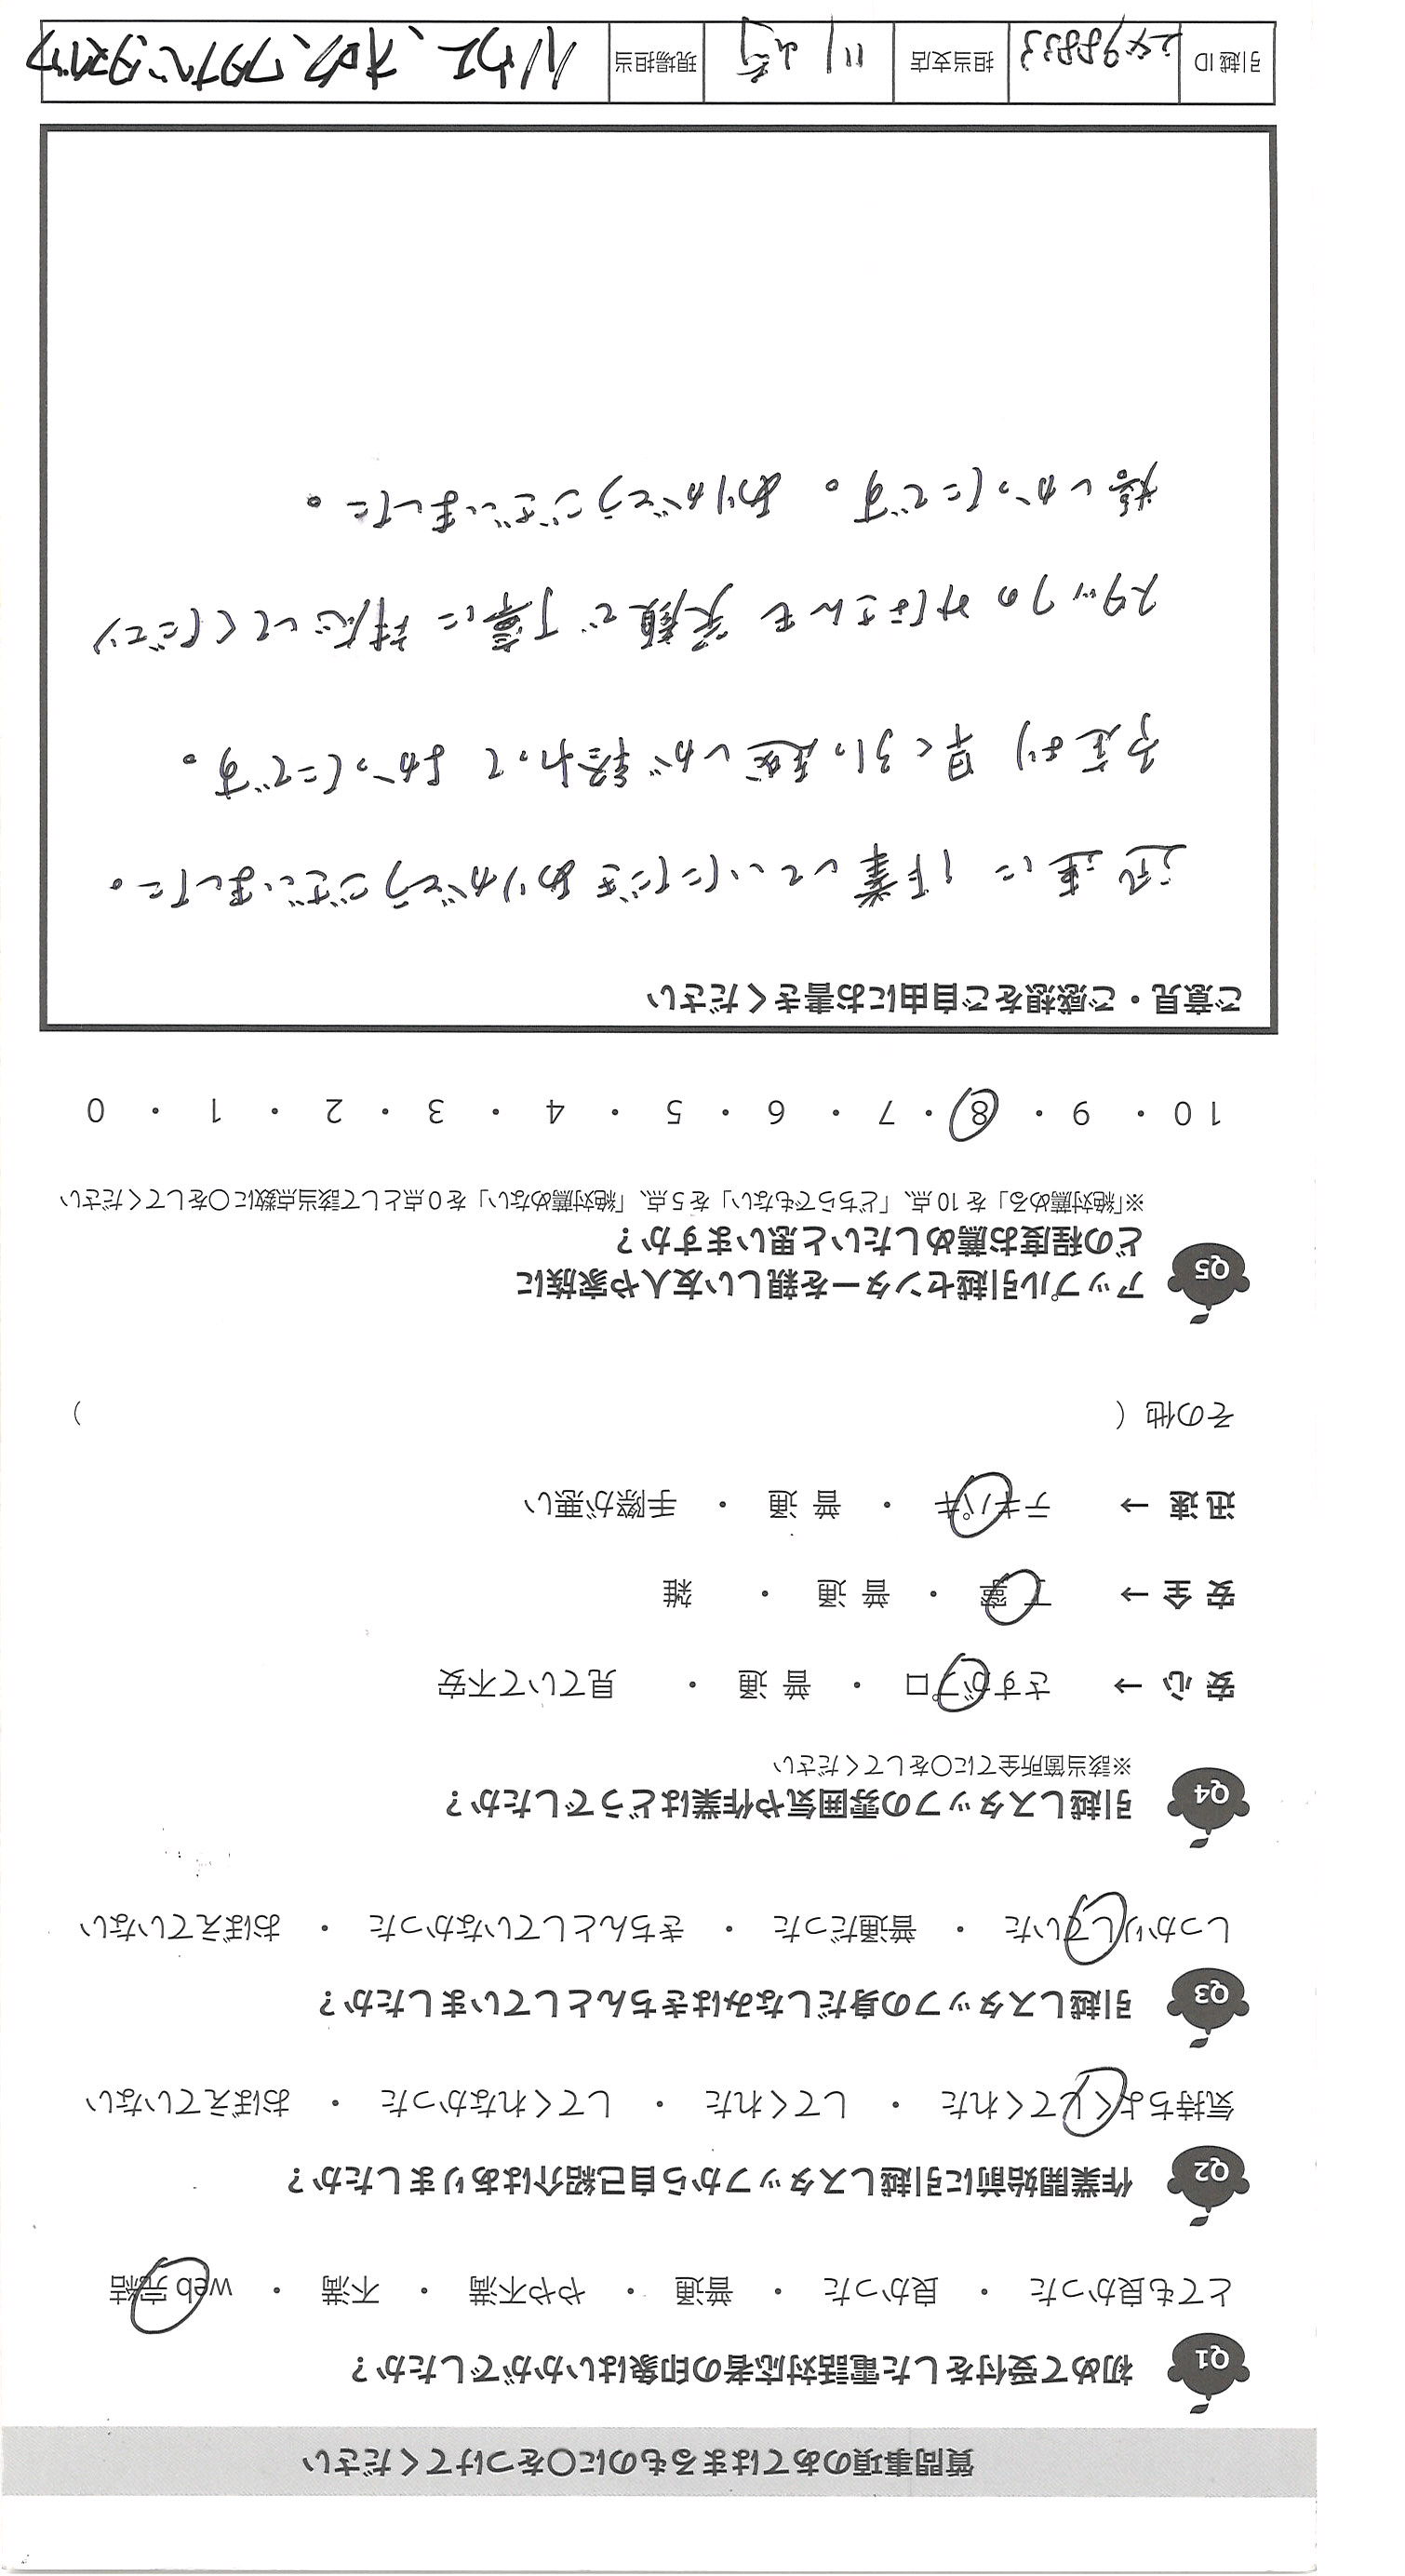 質問事項のあてはまるものに○をつけてください
Q1 初めて受付をした電話対応者の印象はいかがでしたか？
とても良かった ・ 良かった ・ 普通 ・ やや不満 ・ 不満 ・ web 完結
Q2 作業開始前に引越しスタッフから自己紹介はありましたか？
気持ちよくしてくれた ・ してくれた ・ してくれなかった ・ おぼえていない
Q3 引越しスタッフの身だしなみはきちんとしていましたか？
しっかりしていた ・ 普通だった ・ きちんとしていなかった ・ おぼえていない
Q4 引越しスタッフの雰囲気や作業はどうでしたか？
※該当箇所全てに○をしてください
安心 → さすがプロ ・ 普通 ・ 見ていて不安
安全 → 丁寧 ・ 普通 ・ 雑
迅速 → テキパキ ・ 普通 ・ 手際が悪い
その他（ ）
Q5 アップル引越センターを親しい友人や家族に
どの程度お薦めしたいと思いますか？
※「絶対薦める」を10点、「どちらでもない」を5点、「絶対薦めない」を0点として該当点数に○をしてください
10 ・ 9 ・ 8 ・ 7 ・ 6 ・ 5 ・ 4 ・ 3 ・ 2 ・ 1 ・ 0
ご意見・ご感想をご自由にお書きください
迅速に作業していただきありがとうございました。
予定より早く引っ越しが終わってよかったです。
スタッフのみなさんも笑顔で丁寧に対応してくださり
嬉しかったです。ありがとうございました。
引越ID 担当支店 川崎 現場担当